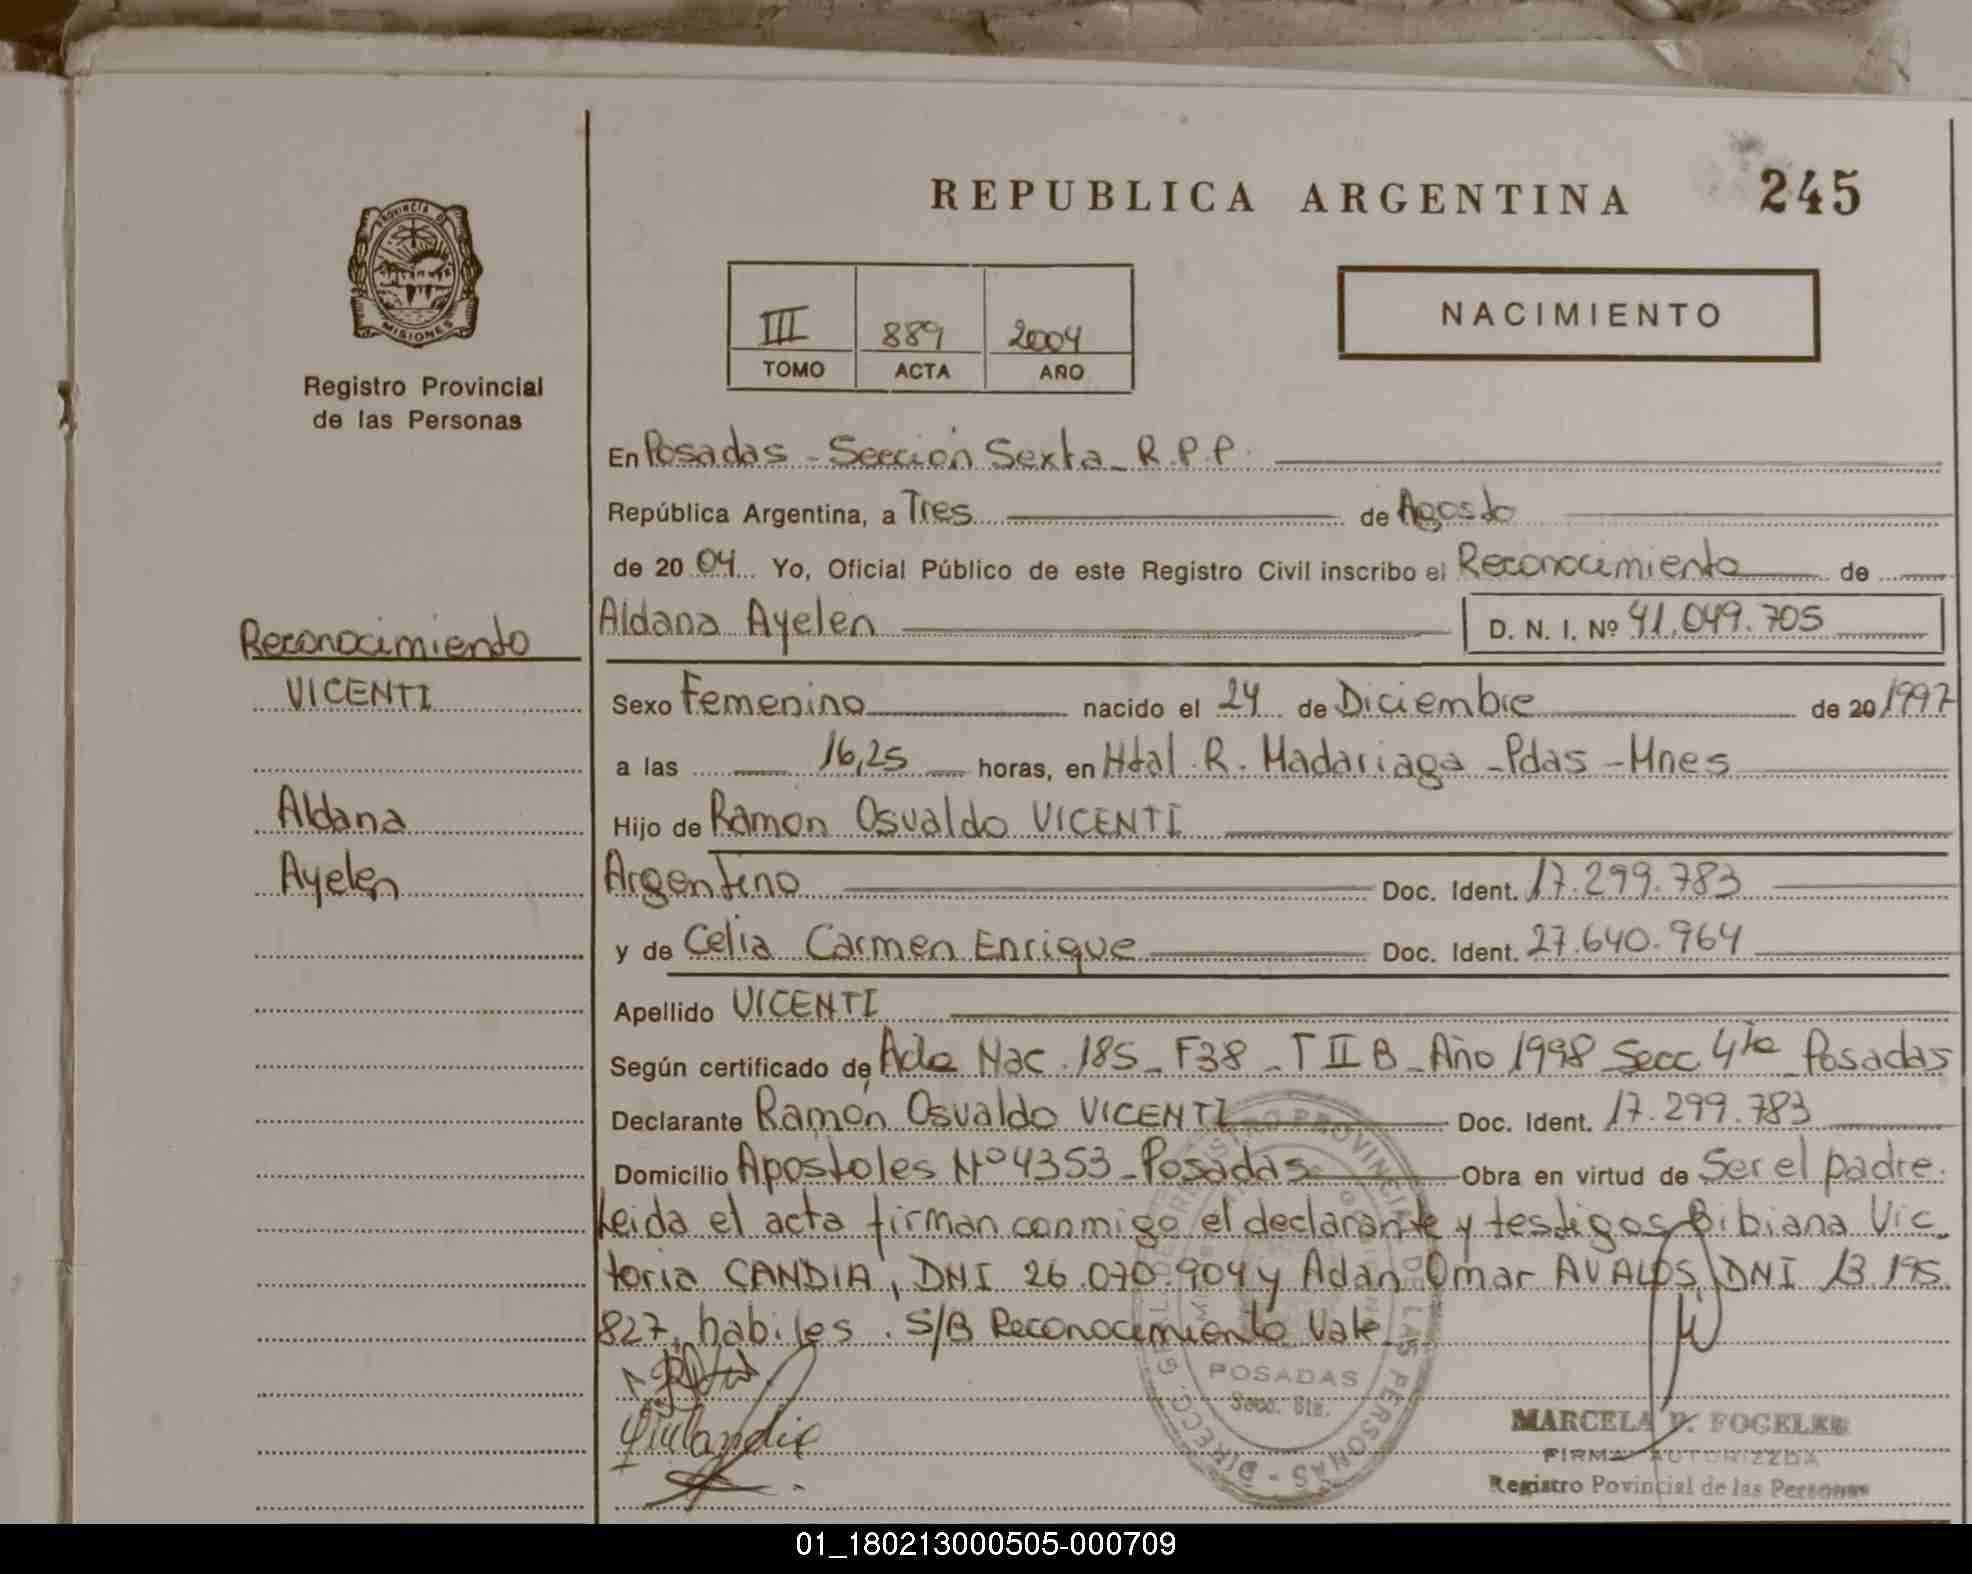 REPUBLICA ARGENTINA
245
PROVINCIA DE
MISIONES
Registro Provincial
de las Personas
III 889 2004
TOMO ACTA AÑO
NACIMIENTO
En Posadas - Sección Sexta - R.P.P.
República Argentina, a Tres de Agosto
de 20 04 Yo, Oficial Público de este Registro Civil inscribo el Reconocimiento de
Aldana Ayelen D. N. I. Nº 41.049.705
Reconocimiento
VICENTI
Aldana
Ayelen
Sexo Femenino nacido el 24 de Diciembre de 20 1997
a las 16,25 horas, en Htal. R. Madariaga - Pdas - Mnes
Hijo de Ramón Osvaldo VICENTI
Argentino Doc. Ident. 17.299.783
y de Celia Carmen Enrique Doc. Ident. 27.640.964
Apellido VICENTI
Según certificado de Acta Nac. 185 - F38 - T II B - Año 1998 Secc 4ta Posadas
Declarante Ramón Osvaldo VICENTI Doc. Ident. 17.299.783
Domicilio Apostoles Nº 4353 - Posadas Obra en virtud de Ser el padre.
Leida el acta firman conmigo el declarante y testigos Bibiana Vic-
toria CANDIA, DNI 26.070.904 y Adan Omar AVALOS DNI 13.195.
827, habiles. S/B Reconocimiento Vale.
POSADAS
Secc. 6ta.
MARCELA FOGELER
FIRMA AUTORIZZDA
Registro Povincial de las Personas
01_180213000505-000709